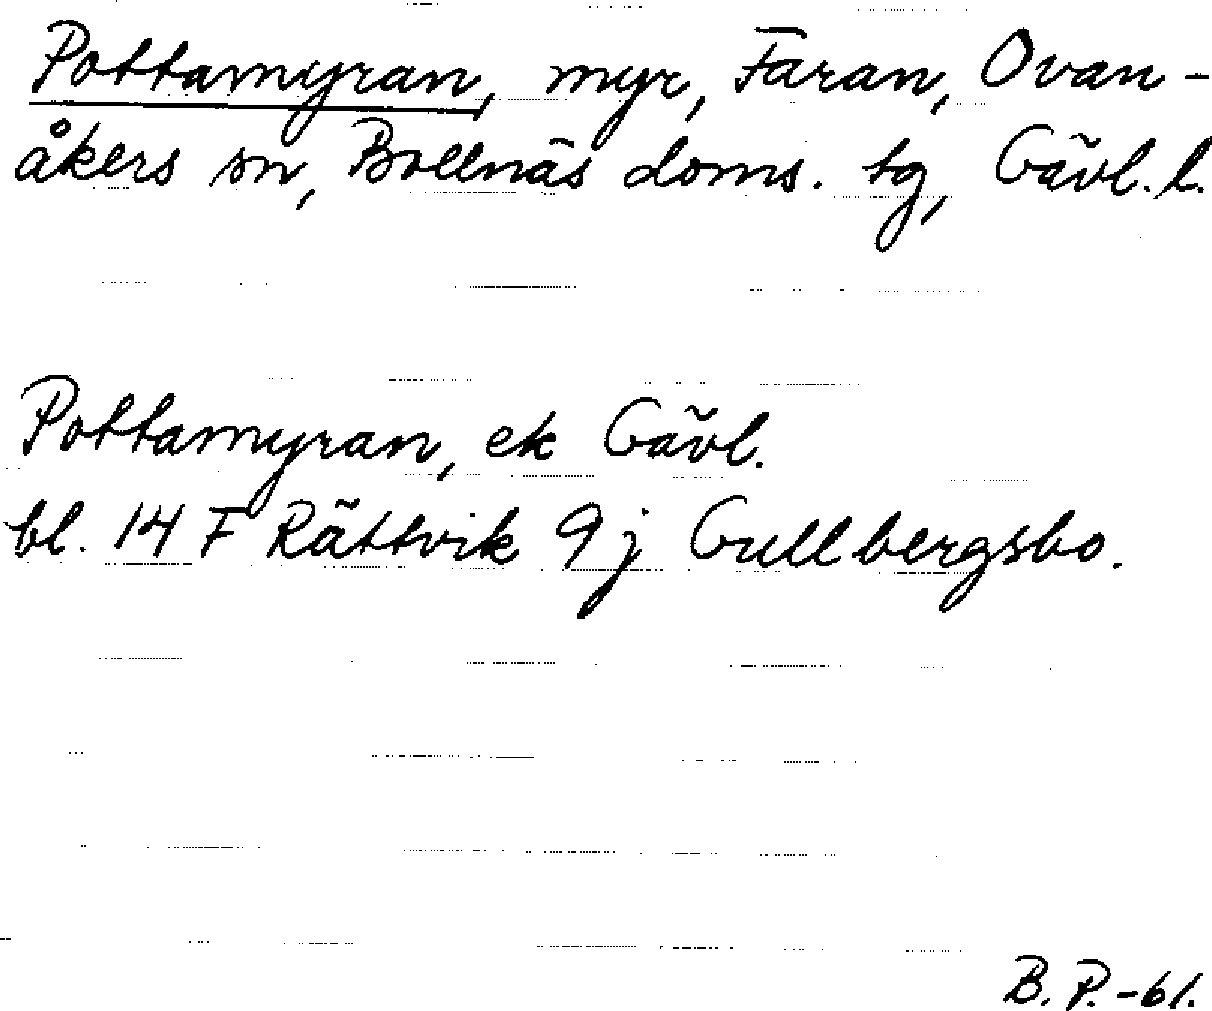 Pottamyran, myr, Faran, Ovan-
åkers sn, Bollnäs doms. tg, Gävl. l.
Pottamyran, ek Gävl.
bl. 14 F Rättvik 9j Gullbergsbo.
B. P. -61.